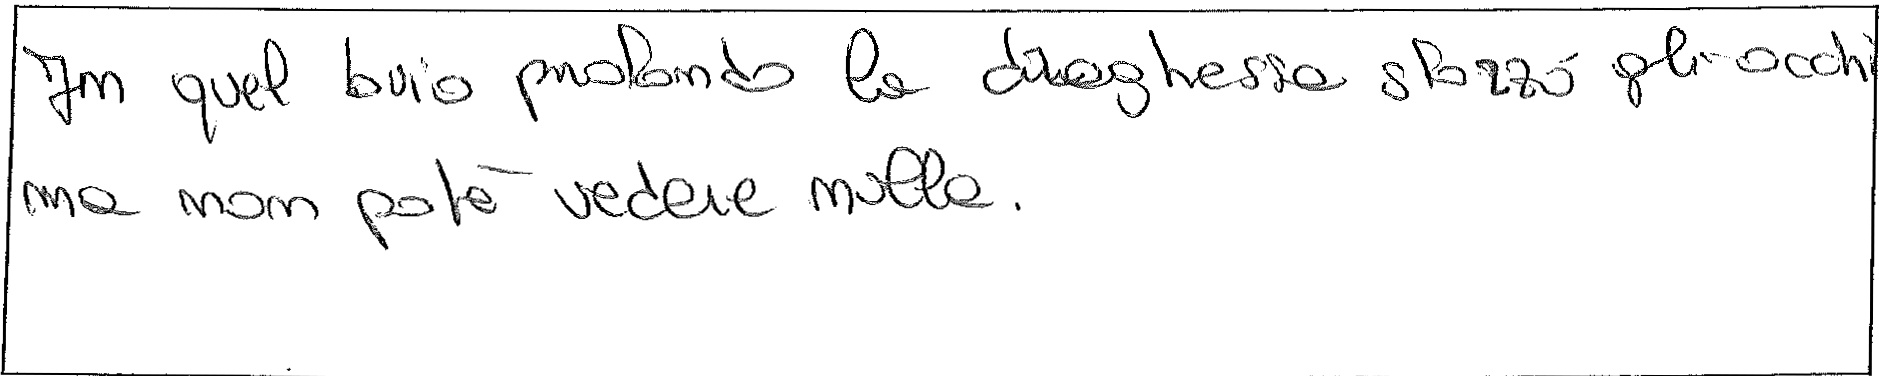 In quel buio profondo la draghessa sbazzò gli occhi
ma non poté vedere nulla.